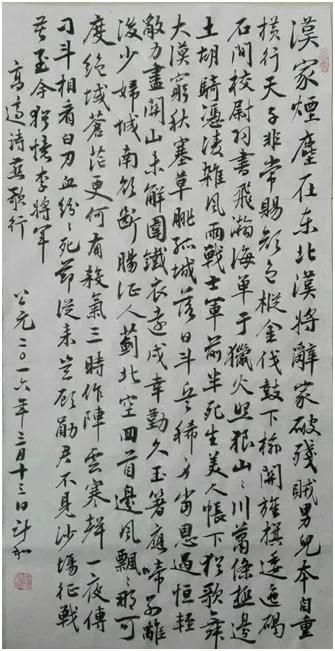 漢家煙塵在东北漢將辭家破殘賊男兒本自重
横行天子非常賜顔色摐金伐鼓下榆關旌旗逶迤碣
石間校尉羽書飛瀚海單于獵火照狼山〻川蕭條極邊
土胡騎憑凌雜風雨戰士軍前半死生美人帳下猶歌舞
大漠窮秋塞草腓孤城落日斗兵稀身當恩遇恒輕
敵力盡關山未解圍鐵衣遠戍辛勤久玉箸應啼别離
後少婦城南欲斷腸征人薊北空回首邊風飄〻那可
度絶域蒼茫更何有殺氣三時作陣雲寒聲一夜傳
刁斗相看白刃血紛〻死節從來豈顧勛君不見沙場征戰
苦至今猶憶李將軍
高適詩燕歌行
公元二〇一六年三月十三日